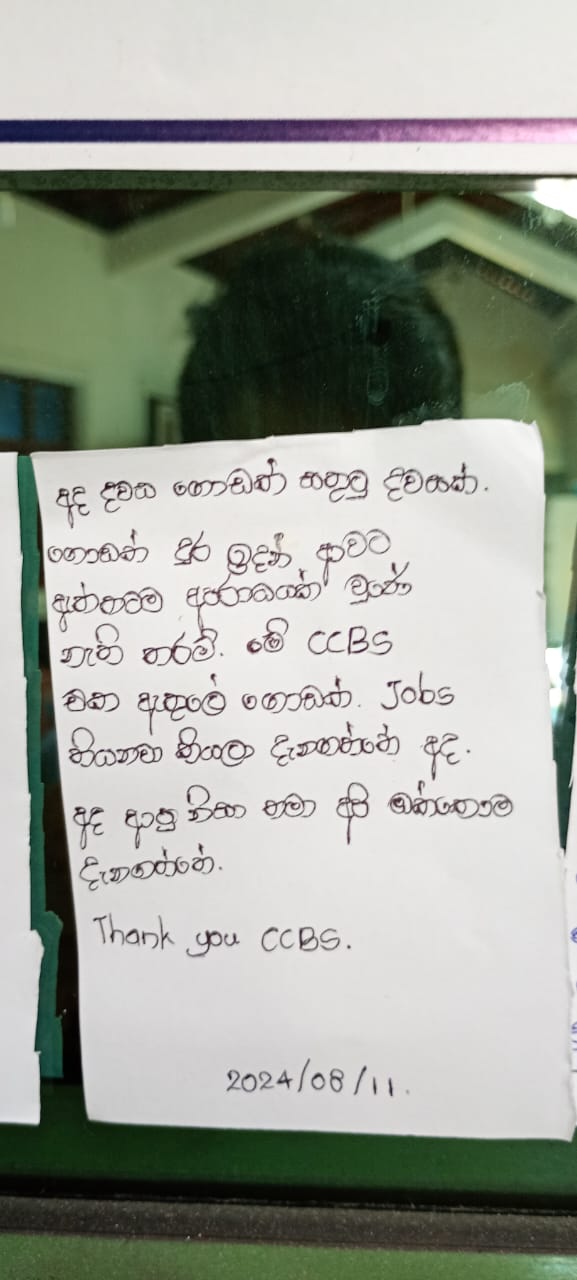 අද දවස ගොඩක් සතුටු දවසක්.
ගොඩක් දුර ඉදන් ආවට
ඇත්තටම අපරාධයක් වුණේ
නැති තරම්. මේ CCBS
එක ඇතුලේ ගොඩක්. Jobs
තියනවා කියලා දැනගත්තේ අද.
අද ආපු නිසා තමා අපි ඔක්කොම
දැනගත්තේ.
Thank you CCBS.
2024/08/11.